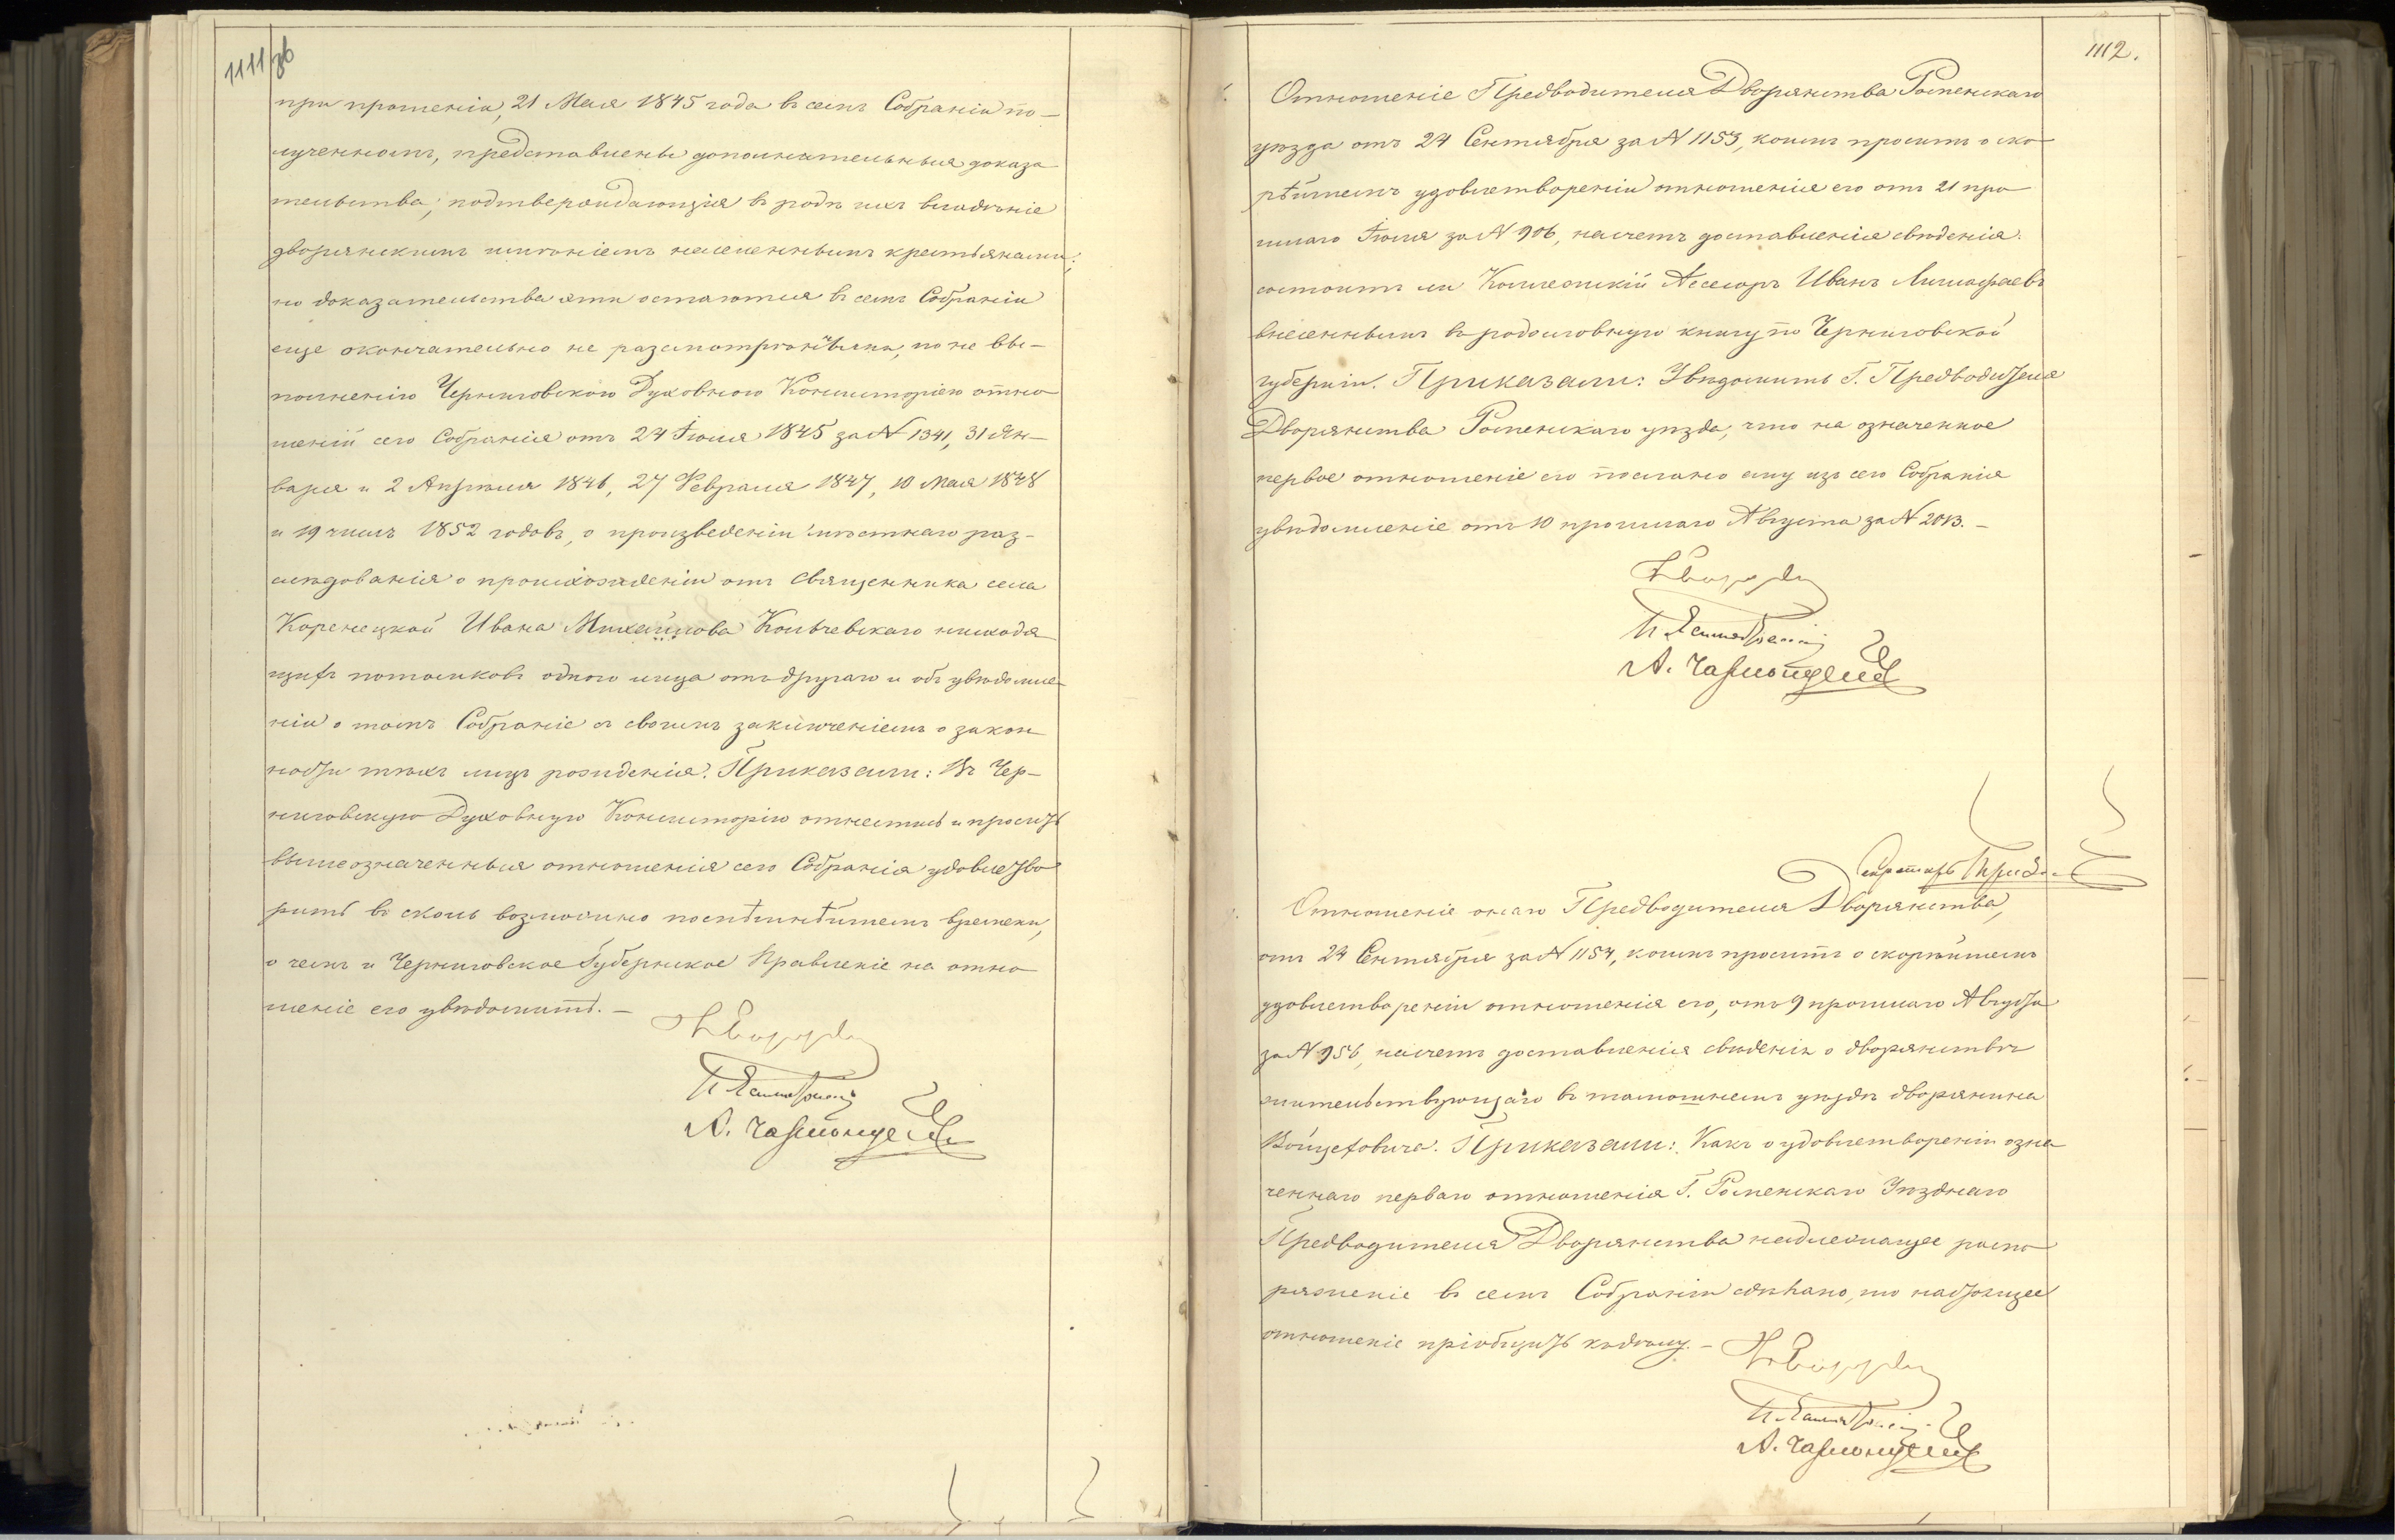 1111 зв
при прошеніи, 21 Мая 1845 года въ семъ Собраніи по-
лученномъ, представлены дополнительныя доказа
тельства, подтверждающія въ родѣ ихъ владѣніе
дворянскимъ имѣніемъ населеннымъ крестьянами;
но доказательства эти остаются въ семъ Собраніи
еще окончательно не разсмотрѣнными, по не вы-
полненію Черниговскою Духовною Консисторіею отно
шеній сего Собранія отъ 24 Іюля 1845 за N 1341, 31 Ян-
варя и 2 Апрѣля 1846, 27 Февраля 1847, 10 Мая 1848
и 1852 годовъ, о произведеніи мѣстнаго раз-
слѣдованія о происхожденіи отъ Священника села
Коренецкой Ивана Михайлова Кольчевскаго нисходя
щихъ потомковъ одного лица отъ другаго и объ увѣдомле-
ніи о томъ Собраніе съ своимъ заключеніемъ о закон
ности тѣхъ лицъ рожденія. Приказали: Въ Чер-
ниговскую Духовную Консисторію отнестись и просить
вышеозначенныя отношенія сего Собранія удовлетво
рить въ сколь возможно поспѣшнѣйшемъ времени,
о чемъ и Черниговское Губернское Правленіе на отно
шеніе его увѣдомить. -
1112.
Отношеніе Предводителя Дворянства Роменскаго
уѣзда отъ 24 Сентября за N 1153, коимъ проситъ о ско
рѣйшемъ удовлетвореніи отношенія его отъ 21 про
шлаго Іюля за N 906, насчетъ доставленія свѣденія:
состоитъ ли Колежскій Асесоръ Иванъ
внесеннымъ въ родословную книгу по Черниговской
губерніи. Приказали: Увѣдомить Г. Предводителя
Дворянства Роменскаго уѣзда, что на означенное
первое отношеніе его послано ему изъ сего Собранія
увѣдомленіе отъ 10 прошлаго Августа за N 2013. -
Секретарь
Отношеніе онаго Предводителя Дворянства,
отъ 24 Сентября за N 1154, коимъ проситъ о скорѣйшемъ
удовлетвореніи отношенія его, отъ 9 прошлаго Августа
за N 956, насчетъ доставленія свѣденія о дворянствѣ
жительствующаго въ тамошнемъ уѣздѣ дворянина
Войцеховича. Приказали: Какъ о удовлетвореніи озна
ченнаго перваго отношенія Г. Роменскаго Уѣзднаго
Предводителя Дворянства надлежащее распо
ряженіе въ семъ Собраніи сдѣлано, то настоящее
отношеніе пріобщить къ дѣлу. -